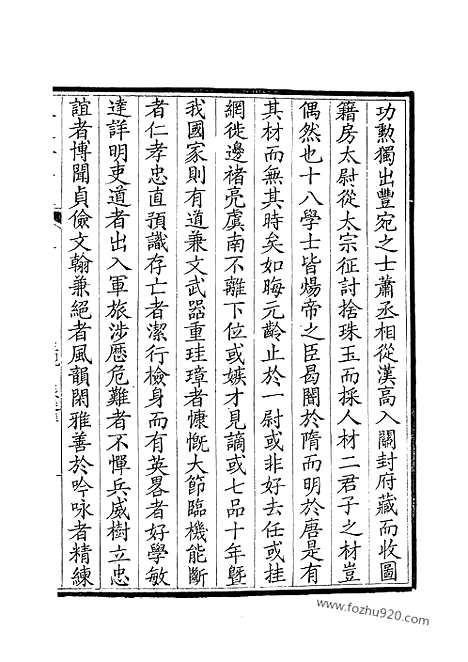 功勲獨出豐宛之士蕭丞相從漢高入關封府藏而收圖
籍房太尉從太宗征討捨珠玉而採人材二君子之材豈
偶然也十八學士皆煬帝之臣曷闇於隋而明於唐是有
其材而無其時矣如晦元齡止於一尉或非好去任或挂
網徙邊褚亮虞南不離下位或嫉才見謫或七品十年曁
我國家則有道兼文武器重珪璋者慷慨大節臨機能斷
者仁孝忠直預識存亡者潔行檢身而有英畧者好學敏
達詳明吏道者出入軍旅涉歷危難者不憚兵威樹立忠
誼者博聞貞儉文翰兼絕者風韻閑雅善於吟咏者精練
www.fozhu920.com